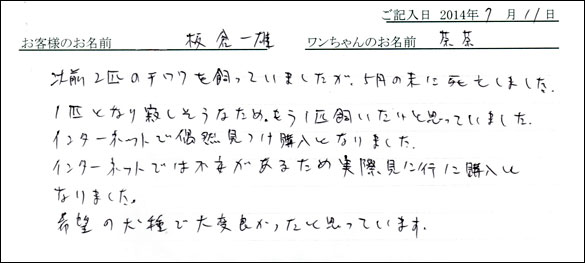 ご記入日 2014年 7 月 11 日
お客様のお名前 板倉一雄 ワンちゃんのお名前 茶茶
以前2匹のチワワを飼っていましたが、5月の末に死亡しました。
1匹となり寂しそうなため、もう1匹飼いたいと思っていました。
インターネットで偶然見つけ購入となりました。
インターネットでは不安があるため実際見に行に購入と
なりました。
希望の犬種で大変良かったと思っています。